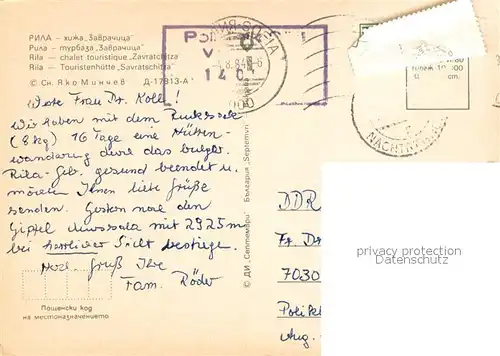 РИЛА — хижа „Заврачица"
Рила — турбаза „Заврачица"
Rila — chalet touristique „Zavratchitza"
Rila — Touristenhütte „Savratschitza"
© Сн. Яко Минчев Д-17913-А
Liebe Frau Dr. Koll!
Wir haben mit dem Rucksack
(8 kg) 16 Tage eine Hütten-
wanderung durch das bulgar.
Rila-Geb. gesund beendet u.
möchten Ihnen liebe Grüße
senden. Gestern noch den
Gipfel Mussala mit 2925 m
bei herrlicher Sicht bestiegen.
Herzl. Gruß Ihre
Fam. Röder
Пощенски код
на местоназначението
© ДИ „Септември" България „Septemvri"
DDR
Fr. Dr
7030
Polikl
Aug.
privacy protection
Datenschutz